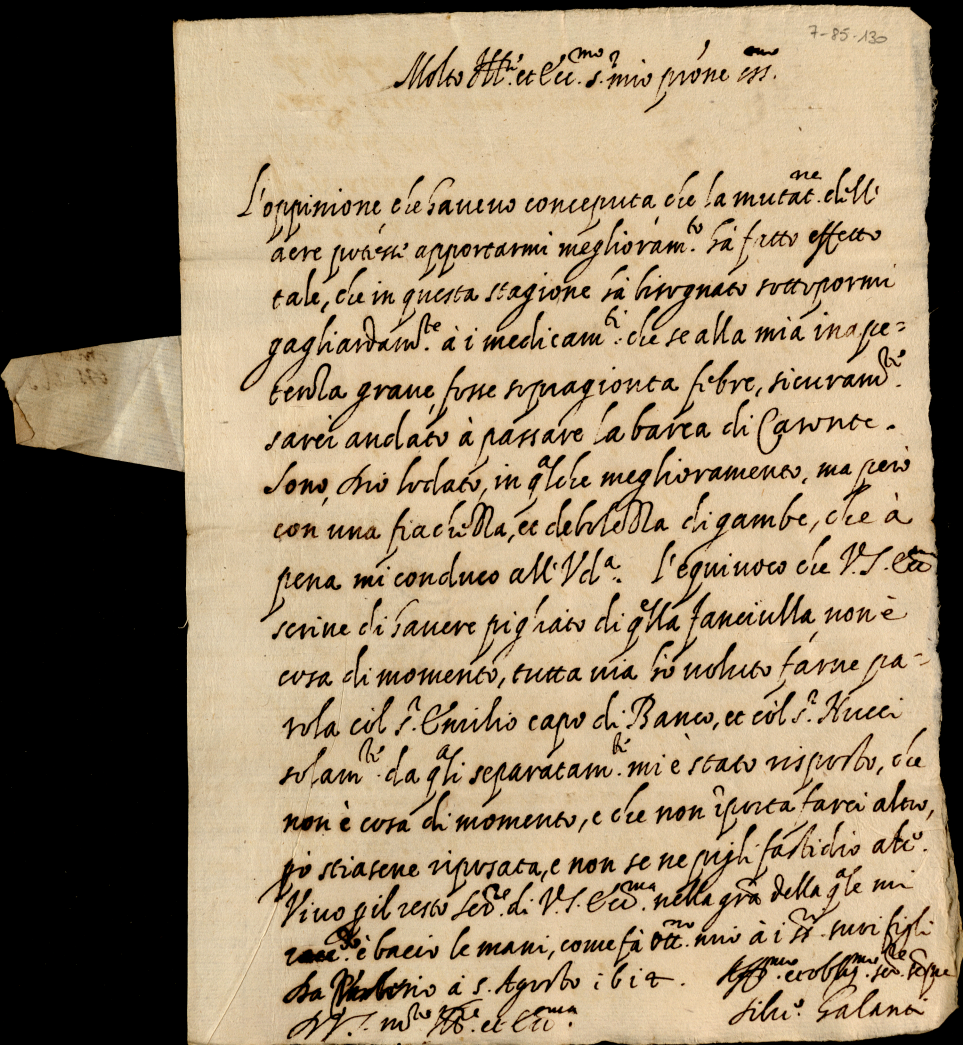 7-85-130
Molto Ill.re et Ecc.mo S.r mio prone oss.mo
L'oppinione che havevo conceputa che la mutat.ne dell'
aere potesse apportarmi miglioram.to hà fatto effetto
tale, che in questa stagione hà bisognato sottopormi
gagliardam.te à i medicam.ti che se alla mia inape=
tenza grave, fosse sopragionta febre, sicuram.te
sarei andato à passare la barca di Caronte.
Sono, Dio lodato, in q.lche meglioramento, ma però
con una fiachezza, et debolezza di gambe, che à
pena mi conduco all'Vd.a. L'equivoco che V.S. Ecc.ma
scrive di havere pigliato di q.lla fanciulla, non è
cosa di momento, tutta via hò voluto farne pa=
rola col S.r Emilio capo di Banco, et col S.r Nucci
solam.te da q.li separatam.te mi è stato risposto, che
non è cosa di momento, e che non īporta farci altro,
però stiasene riposata, e non se ne pigli fastidio alc.o
Vivo p il resto ser.re di V.S. Ecc.ma nella gra della q.le mi
racc.do è bacio le mani, come fà Ott.no mio à i SS.ri suoi figli
Da à 5. Agosto 1612. Aff.mo et oblig.mo ser.re sēpre
D V.S. m.to Ill.re et Ecc.ma Silvio Galanti